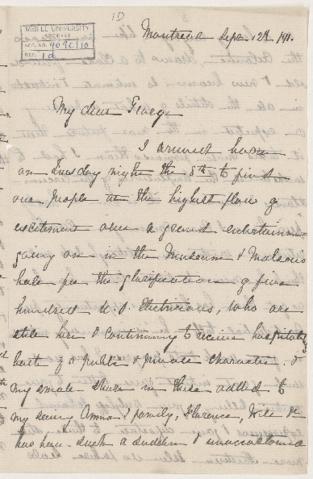 1D
McGILL UNIVERSITY
ACC. NO.
REF. 1d
Montreal Sept. 12th
My dear George
I arrived home
on Tuesday night the 8th to find
our people at the highest flow of
excitement over a grand entertainment
going on in the Museum & Molsons
hall for the glorification of four
hundred U S Electricians, who are
still here & continuing to receive hospitality
both of a public & private character, &
any small share in these added to
my seeing Anna & family, Florence, Will &c
has been such a sudden & unaccustomed